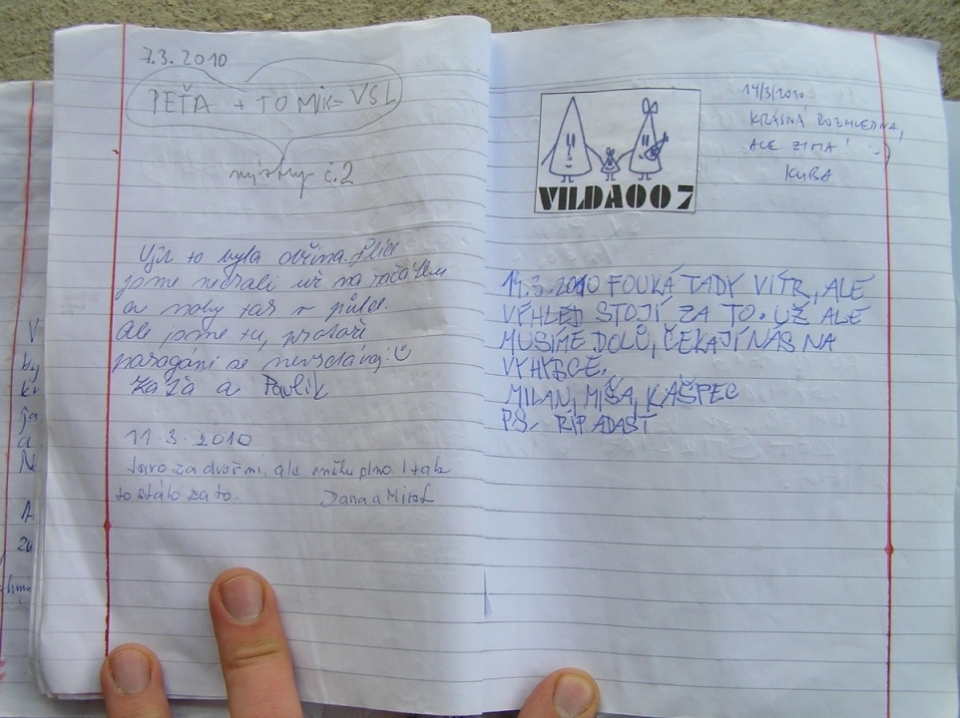 7.3. 2010
PEŤA + TOMÍK = VSL
č. 2
Ujír to byla dřina. Plíce
jsme nechali už na začátku
a nohy tak v půlce.
Ale jsme tu, protože
paragáni se nevzdávaj! ☺
Zaza a Pavlík
11. 3. 2010
Jaro za dveřmi, ale sněhu plno. I tak
to stálo za to. Dana a Mirek
VILDA007
14/3/2010
KRÁSNÁ ROZHLEDNA,
ALE ZIMA! :-)
KUBA
14.3.2010 FOUKÁ TADY VÍTR, ALE
VÝHLED STOJÍ ZA TO. UŽ ALE
MUSÍME DOLŮ, ČEKAJÍ NÁS NA
VÝHYBCE.
MILAN, MÍŠA, KAŠPEC
PS. RIP ADAST